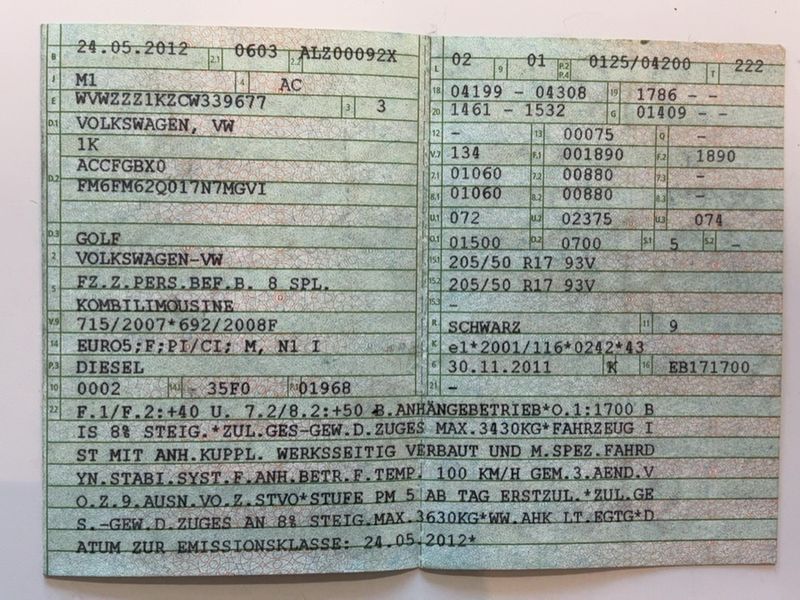 B 24.05.2012 2.1 0603 2.2 ALZ00092X
J M1 4 AC
E WVWZZZ1KZCW339677 3 3
D.1 VOLKSWAGEN, VW
1K
ACCFGBX0
D.2 FM6FM62Q017N7MGVI
D.3 GOLF
2 VOLKSWAGEN-VW
5 FZ.Z.PERS.BEF.B. 8 SPL.
KOMBILIMOUSINE
V.9 715/2007*692/2008F
14 EURO5;F;PI/CI; M, N1 I
P.3 DIESEL
10 0002 14.1 35F0 P.1 01968
L 02 9 01 P.2 P.4 0125/04200 T 222
18 04199 - 04308 19 1786 - -
20 1461 - 1532 G 01409 - -
12 - 13 00075 Q -
V.7 134 F.1 001890 F.2 1890
7.1 01060 7.2 00880 7.3 -
8.1 01060 8.2 00880 8.3 -
U.1 072 U.2 02375 U.3 074
O.1 01500 O.2 0700 S.1 5 S.2 -
15.1 205/50 R17 93V
15.2 205/50 R17 93V
15.3 -
R SCHWARZ 11 9
K e1*2001/116*0242*43
6 30.11.2011 17 K 16 EB171700
21 -
22 F.1/F.2:+40 U. 7.2/8.2:+50 B.ANHÄNGEBETRIEB*O.1:1700 B
IS 8% STEIG.*ZUL.GES-GEW.D.ZUGES MAX.3430KG*FAHRZEUG I
ST MIT ANH.KUPPL. WERKSSEITIG VERBAUT UND M.SPEZ.FAHRD
YN.STABI.SYST.F.ANH.BETR.F.TEMP. 100 KM/H GEM.3.AEND.V
O.Z.9.AUSN.VO.Z.STVO*STUFE PM 5 AB TAG ERSTZUL.*ZUL.GE
S.-GEW.D.ZUGES AN 8% STEIG.MAX.3630KG*WW.AHK LT.EGTG*D
ATUM ZUR EMISSIONSKLASSE: 24.05.2012*